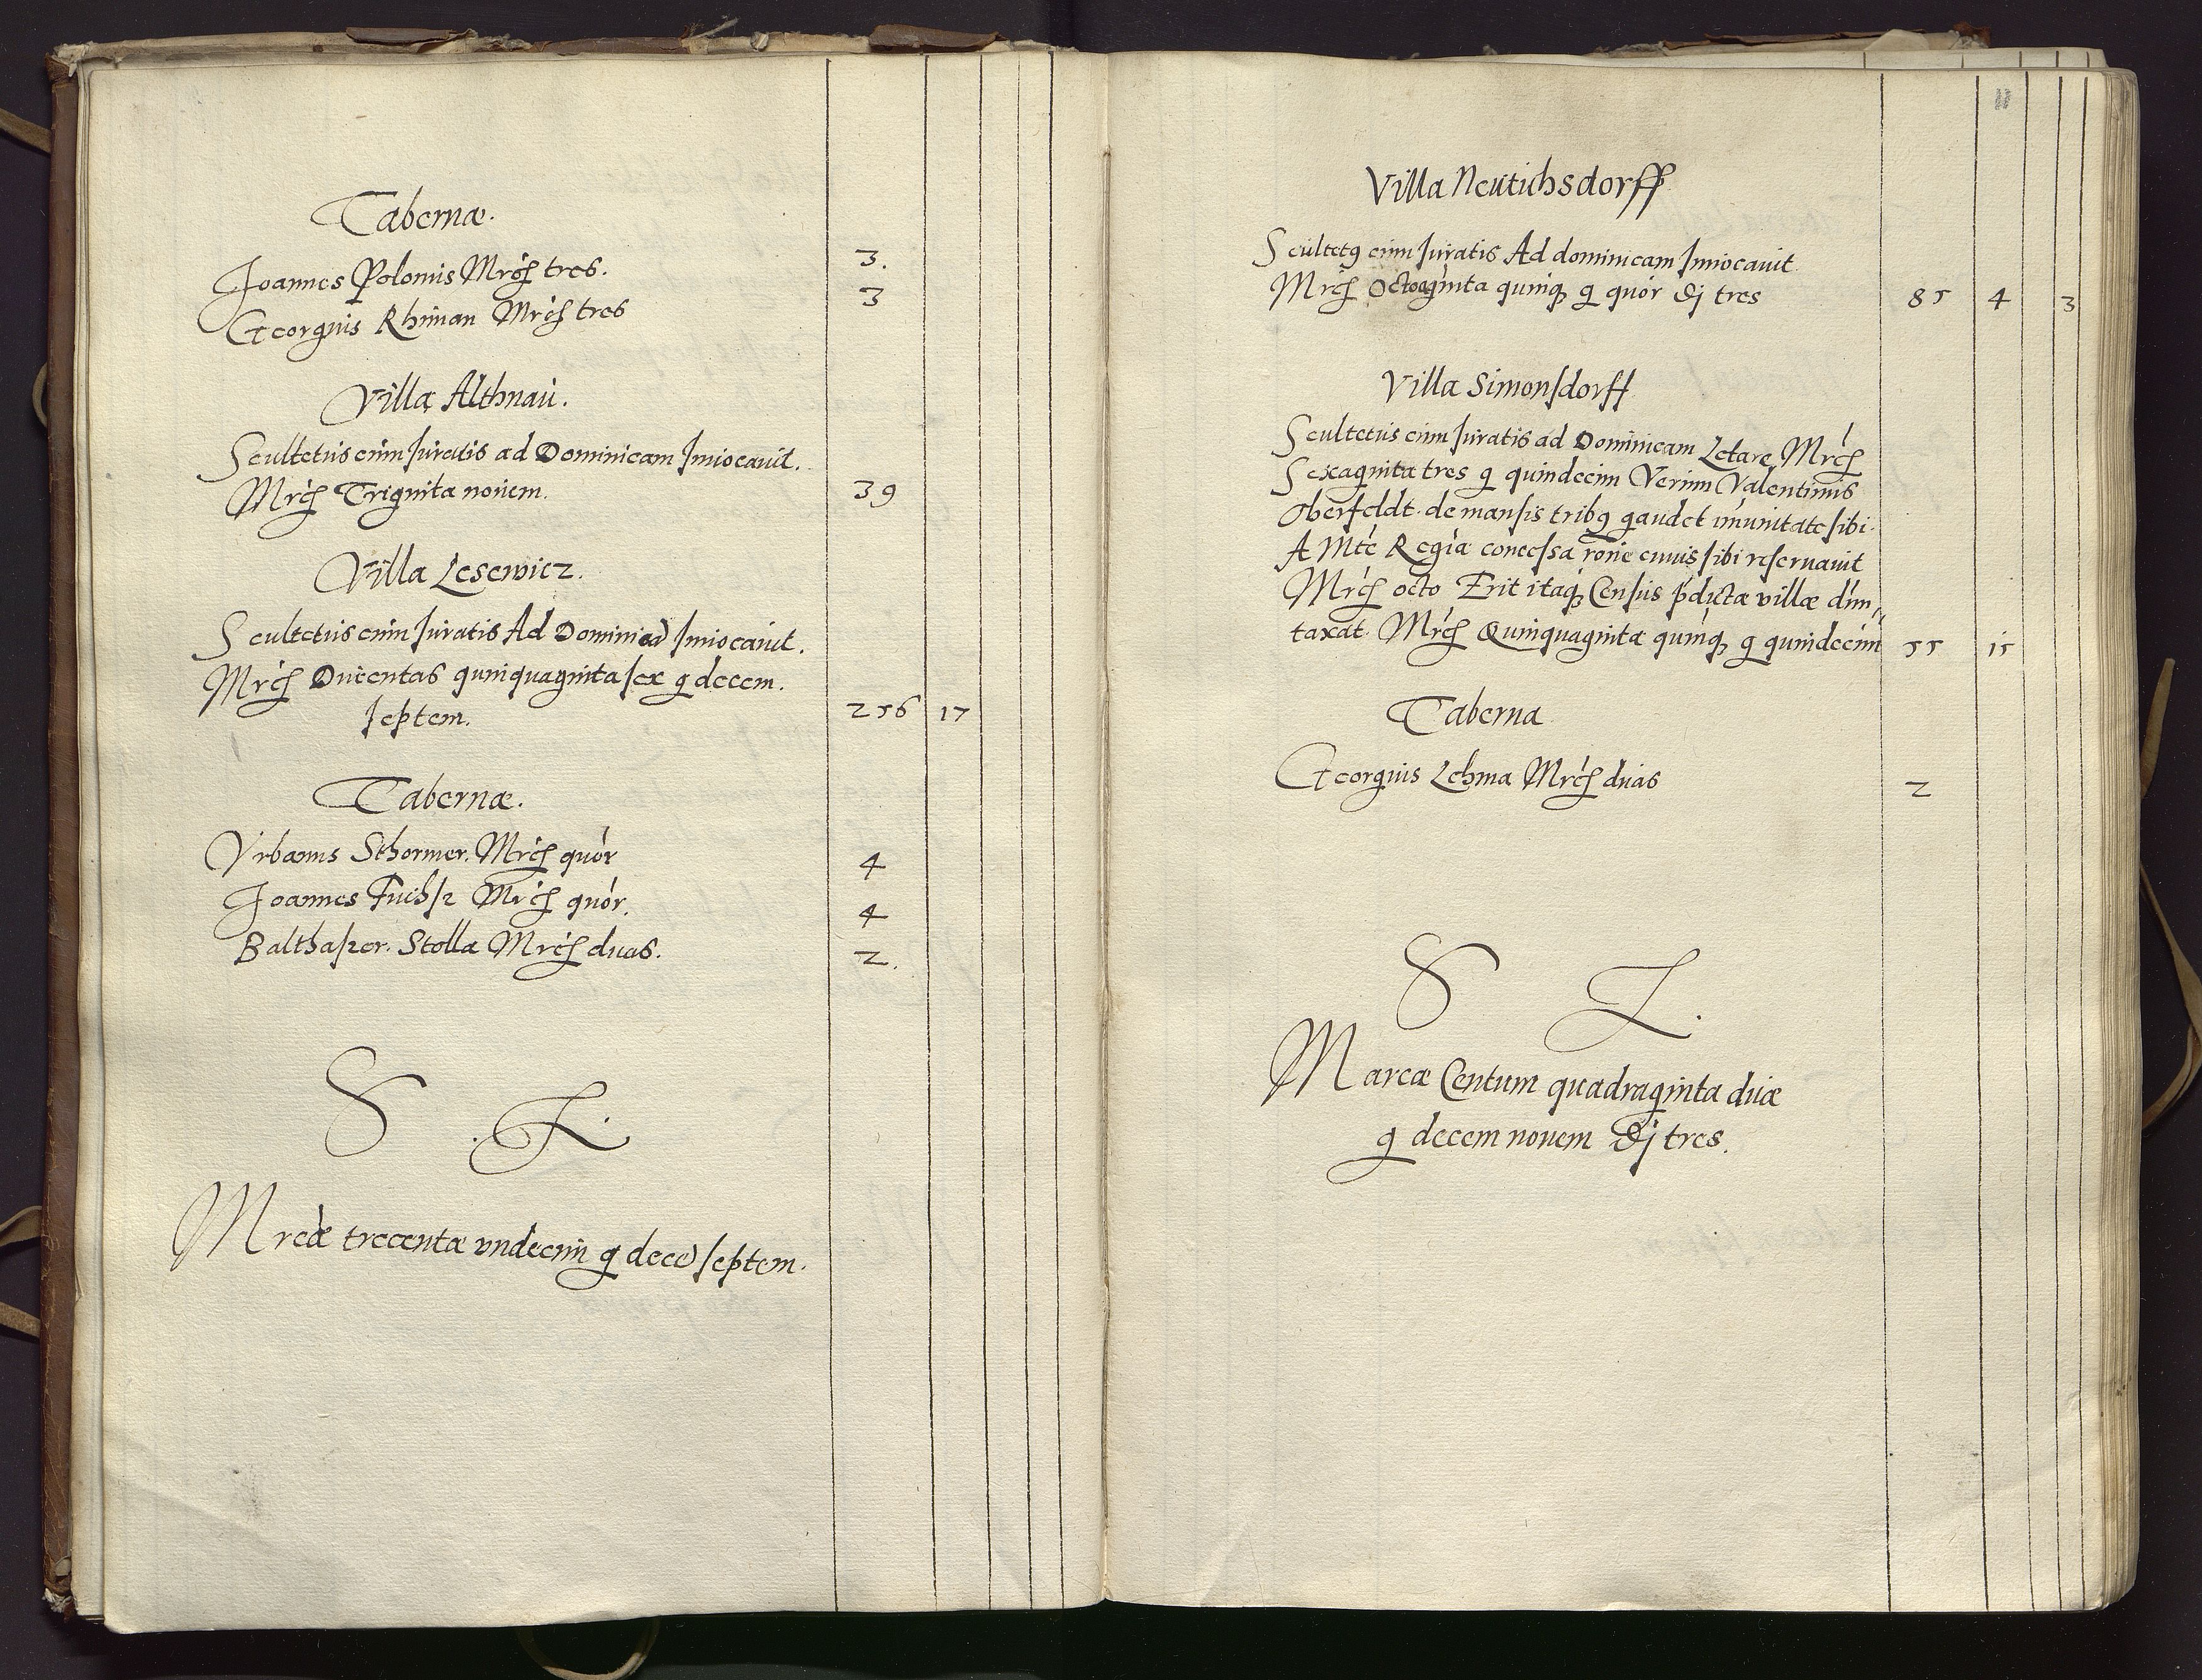 Tabernæ.
Joannes Polonus Mrc͡s tres. 3.
Georgius Rhiman Mrc͡s tres 3
Villa Althnaú.
Scultetus cum Juratis ad Dominicam Inuocauit.
Mrc͡s Triginta nouem. 39
Villa Lesewicz.
Scultetus cum Juratis Ad Dominicā Inuocauit.
Mrc͡s Ducentas quinquaginta sex g decem.
septem. 256 17
Tabernæ.
Vrbanus Sthormer. Mrc͡s quór 4
Joannes Fuchsz Mrc͡s quór. 4
Balthaszer. Stolla Mrc͡s duas. 2.
S L.
Mrcæ trecentæ vndecim g decē septem.
11
Villa Neutichsdorff
Scultetꝰ cum Juratis Ad dominicam Inuocauit
Mrc͡s Octoaginta quinqꝫ g quór ₰ tres 85 4 3
Villa Simonsdorff
Scultetus cum Juratis ad Dominicam Letare Mrc͡s
Sexaginta tres g quindecim Verum Valentinus
Oberfeldt. de mansis tribꝰ gaudet im̄unitate sibi.
A Mte Regia concessa rōne cuius sibi reseruauit
Mrc͡s octo Erit itaqꝫ Census p̄dictæ villæ dun„
taxat. Mrc͡s Quinquaginta quinqꝫ g quindecim 55 15
Taberna
Georgius Lehma Mrc͡s duas 2
S L.
Marcæ Centum quadraginta duæ
g decem nouem ₰ tres.